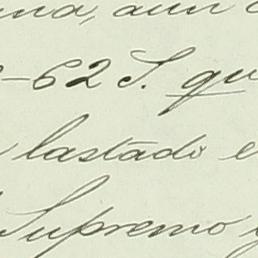 una, aun
-62 S. qu
lastado e
Supremo y